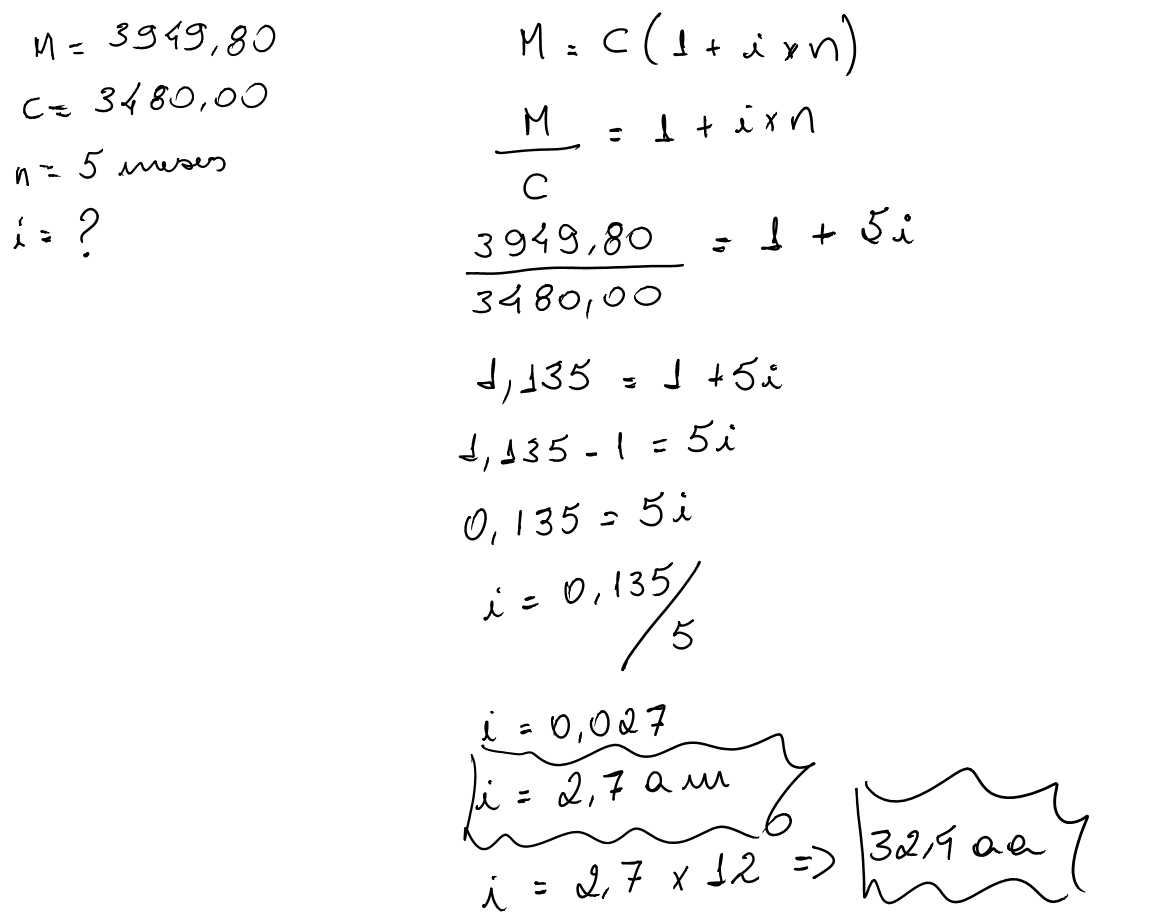 M = 3949,80
C = 3480,00
n = 5 meses
i = ?
M = C(1 + i × n)
M
C
= 1 + i × n
3949,80
3480,00
= 1 + 5i
1,135 = 1 + 5i
1,135 - 1 = 5i
0,135 = 5i
i = 0,135/5
i = 0,027
i = 2,7 a m
i = 2,7 × 12 => 32,4 a a